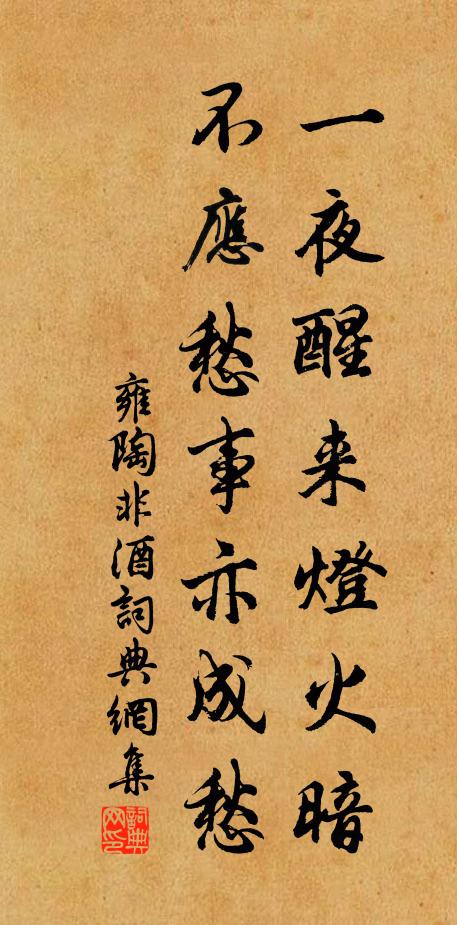 一夜醒来燈火暗
不應愁事亦成愁
雍陶非酒詞典網集
詞典網印